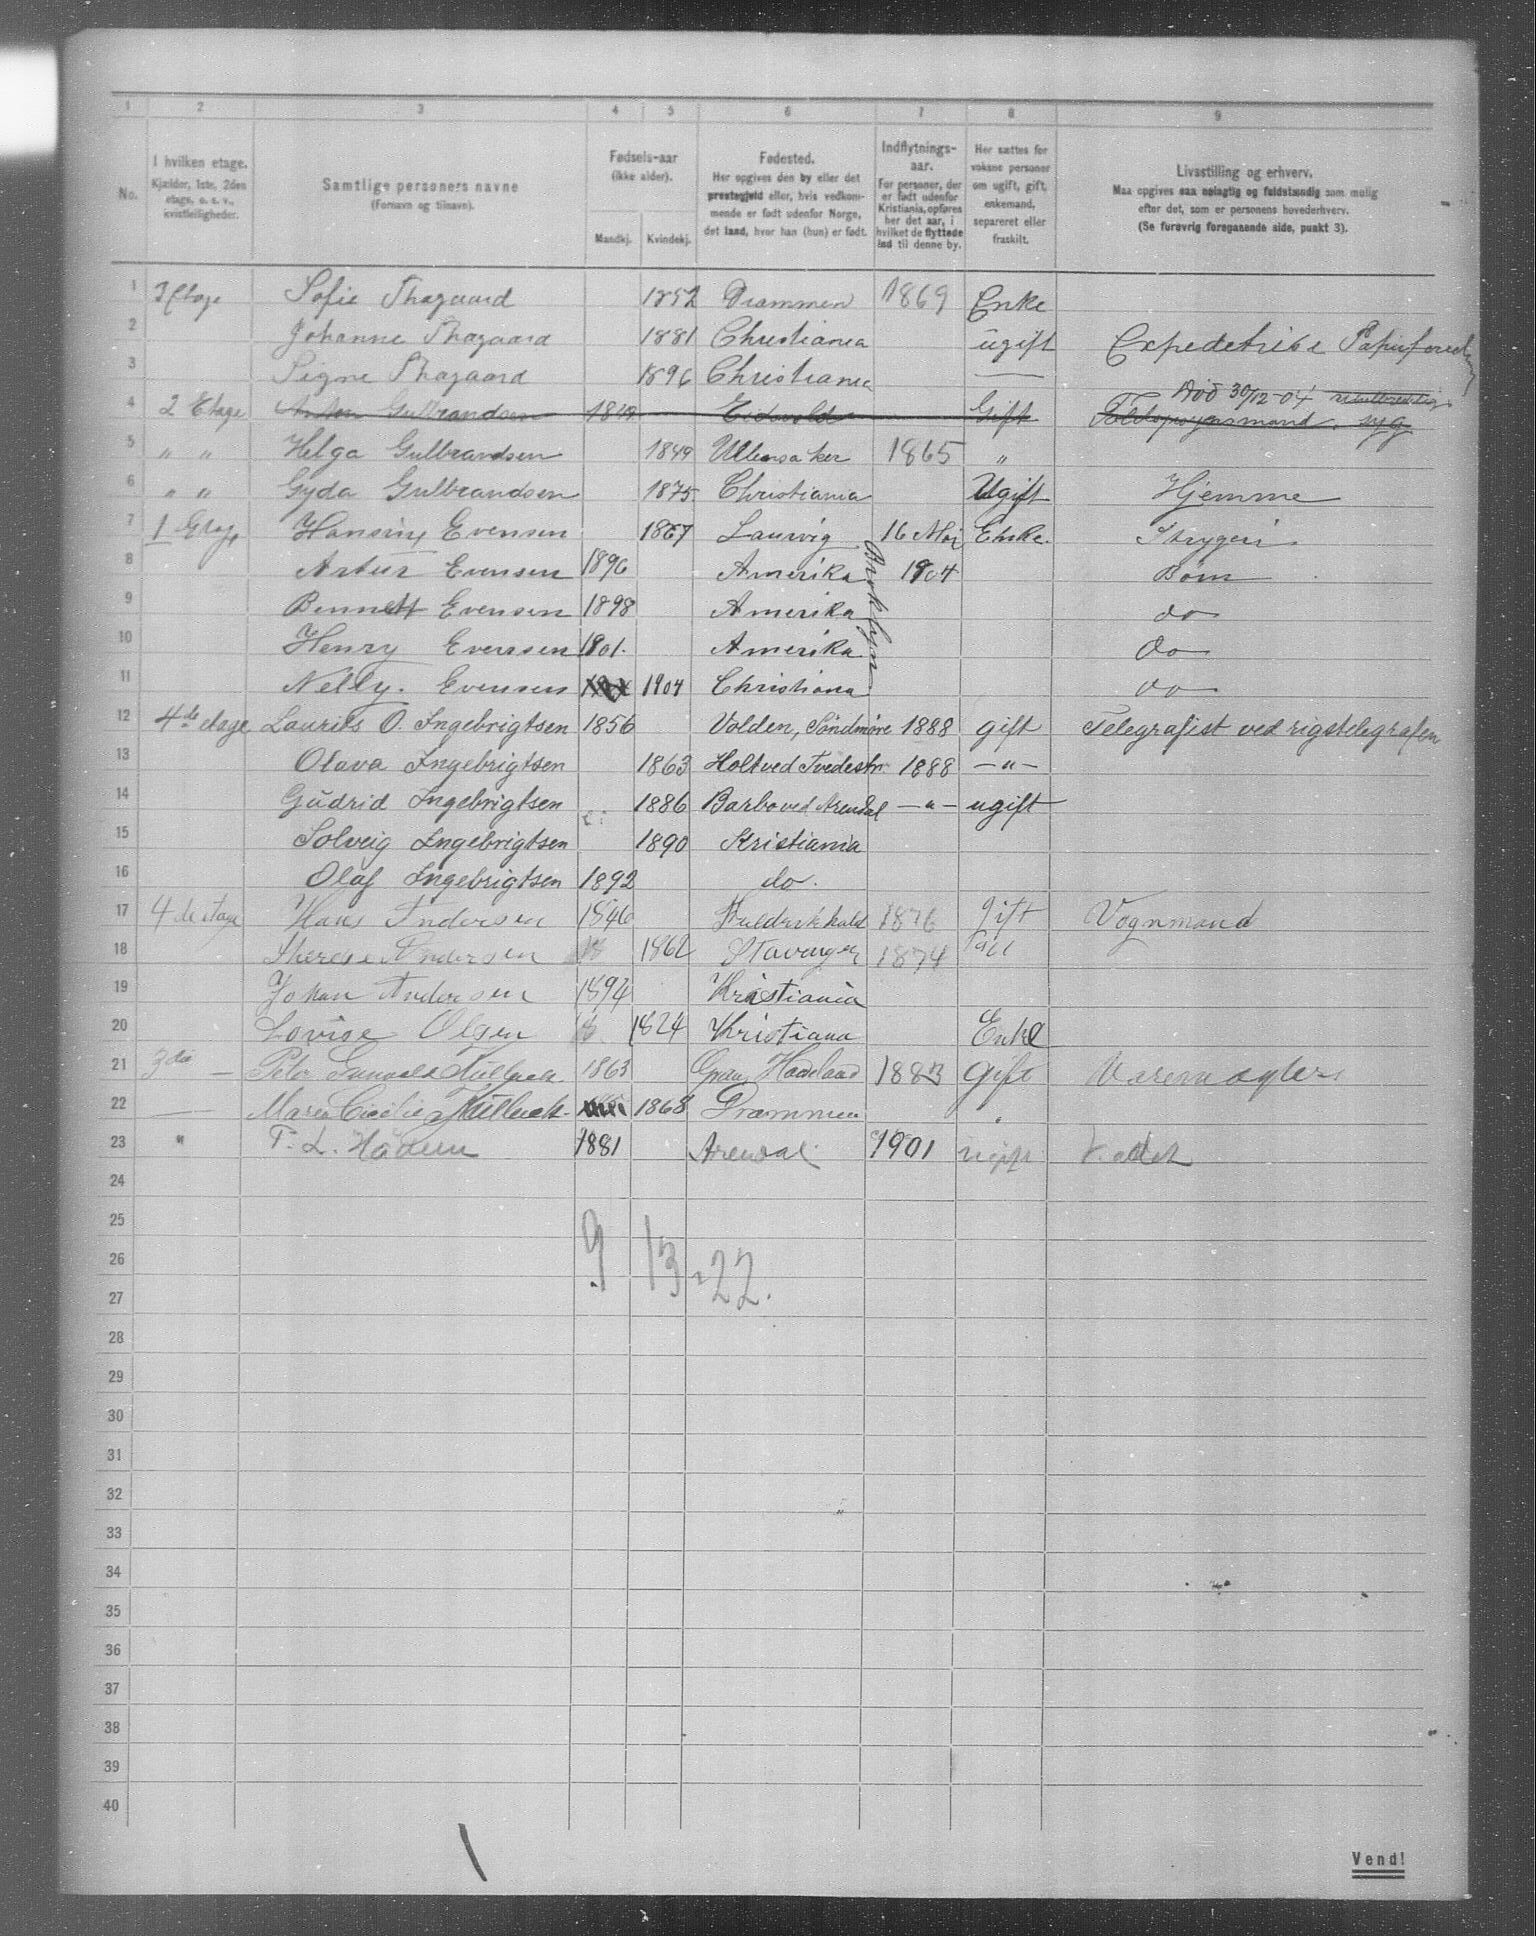 1 2 3 4 5 6 7 8 9
No.
I hvilken etage.
Kjælder, 1ste, 2den
etage, o. s. v.,
kvistleiligheder.
Samtlige personers navne
(Fornavn og tilnavn).
Fødsels-aar
(ikke alder).
Mandkj. Kvindekj.
Fødested.
Her opgives den by eller det
prestegjeld eller, hvis vedkom-
mende er født udenfor Norge,
det land, hvor han (hun) er født.
Indflytnings-
aar.
For personer, der
er født udenfor
Kristiania, opføres
her det aar, i
hvilket de flyttede
ind til denne by.
Her sættes for
voksne personer
om ugift, gift,
enkemand,
separeret eller
fraskilt.
Livsstilling og erhverv.
Maa opgives saa nøiagtig og fuldstændig som mulig
efter det, som er personens hovederhverv.
(Se forøvrig foregaaende side, punkt 3).
1 Etage Sofie Thagaard 1852 Drammen 1869 Enke
2 Johanne Thagaard 1881 Christiania ugift Expedetrise
3 Signe Thagaard 1896 Christiania —
Død 30/12-04
4 2 Etage Anton Gulbrandsen 1849 Eidsvold Gift syg
5 " " Helga Gulbrandsen 1849 Ullensaker 1865 "
6 " " Gyda Gulbrandsen 1875 Christiania Ugift Hjemme
7 1 Etage Hansine Evensen 1867 Laurvig 16 Mai Enke. Strygeri
8 Artur Evensen 1896 Amerika 1904 Børn
9 Bennett Evensen 1898 Amerika do
10 Henry Evensen 1901. Amerika do
11 Nelly. Evensen 1904 Christiana do
Broklyn
12 4de etage Laurits O. Ingebrigtsen 1856 Volden, Søndmøre 1888 gift Telegrafist ved rigstelegrafen
13 Olava Ingebrigtsen 1863 Holt ved Tvedestr. 1888 —"—
14 Gudrid Ingebrigtsen 1886 Barbo ved Arendal —"— ugift
15 Solveig Ingebrigtsen 1890 Kristiania
16 Olaf Ingebrigtsen 1892 do.
17 4de etage Hans Andersen 1846 Fredrikhald 1876 gift Vognmand
18 Therese Andersen 1862 Stavanger 1874
19 Johan Andersen 1894 Kristiania
20 Lovise Olsen 1824 Kristiana Enke
21 3die — Peter 1863 Gran Hadeland 1883 gift
22 — Maren Cicilie 1868 Drammen "
23 " T. L. 1881 Arendal. 1901 ugift Kadet
24
25
9 13 = 22.
26
27
28
29
30
31
32
33
34
35
36
37
38
39
40
Vend!